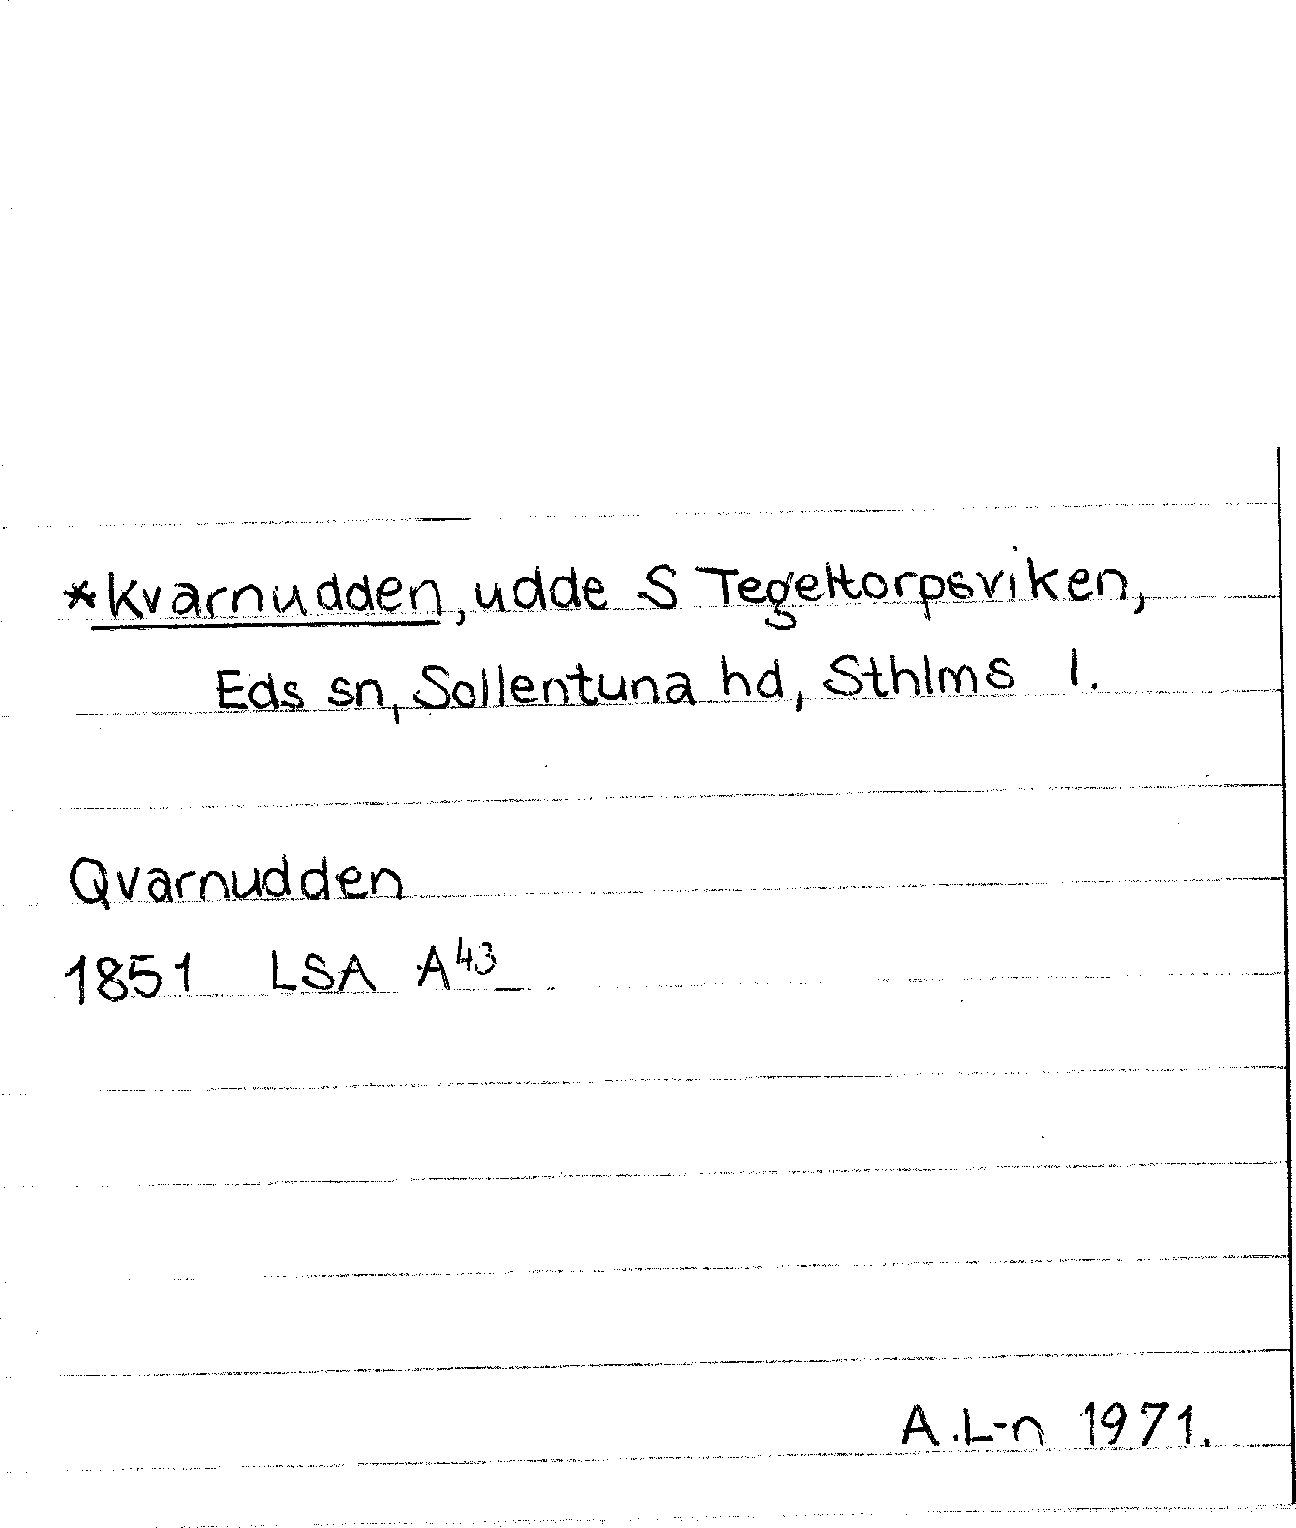 *Kvarnudden, udde S Tegeltorpsviken,
Eds sn, Sollentuna hd, Sthlms l.
Qvarnudden
1851 LSA A⁴³
A.L-n 1971.